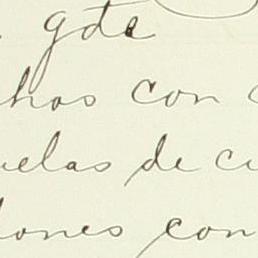 gde
hos con
uelas de cu
lones con